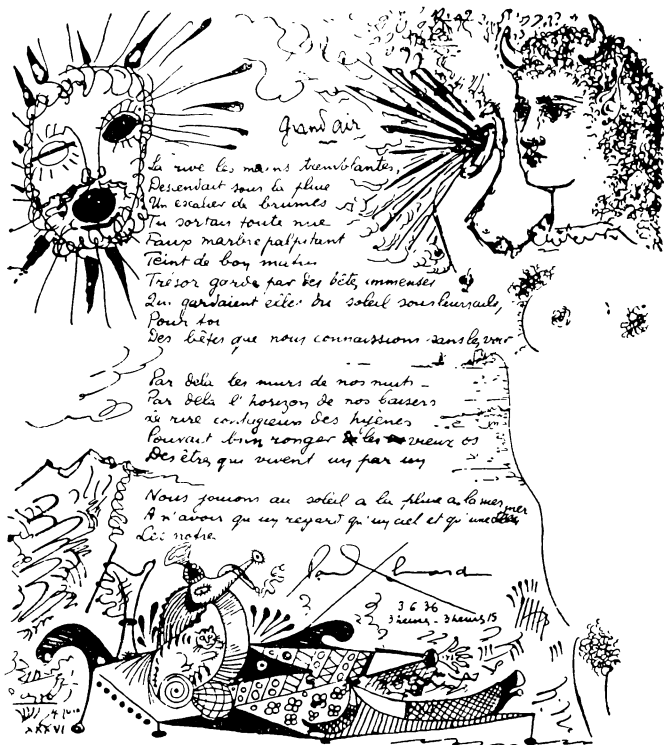 Grand air
La rive les mains tremblantes
Descendait sous la pluie
Un escalier de brumes
Tu sortais toute nue
Faux marbre palpitant
Teint de bon matin
Trésor gardé par des bêtes immenses
Qui gardaient elles du soleil sous leurs ailes
Pour toi
Des bêtes que nous connaissions sans les voir
Par delà les murs de nos nuits
Par delà l'horizon de nos baisers
Le rire contagieux des hyènes
Pouvait bien ronger les vieux os
Des êtres qui vivent un par un
Nous jouions au soleil a la pluie a la mer
A n'avoir qu'un regard qu'un ciel et qu'une mer
Les notres
Paul Eluard
3 6 36
3 heures - 3 heures 15
4 juin
XXXVI